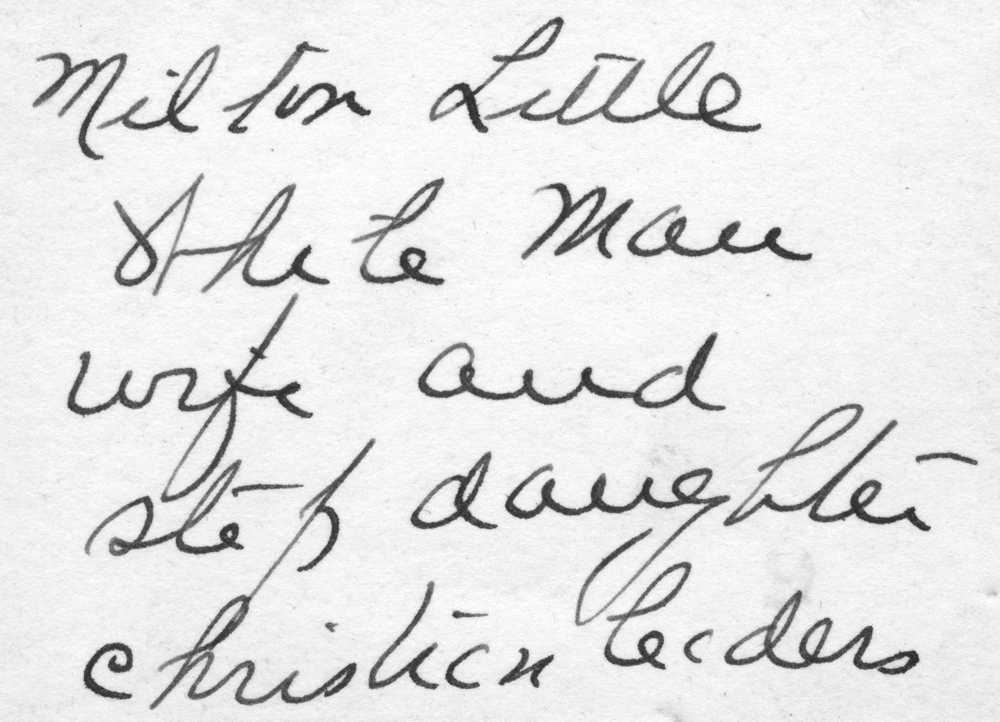 Milton Little
White Man
wife and
step daughter
christian leaders